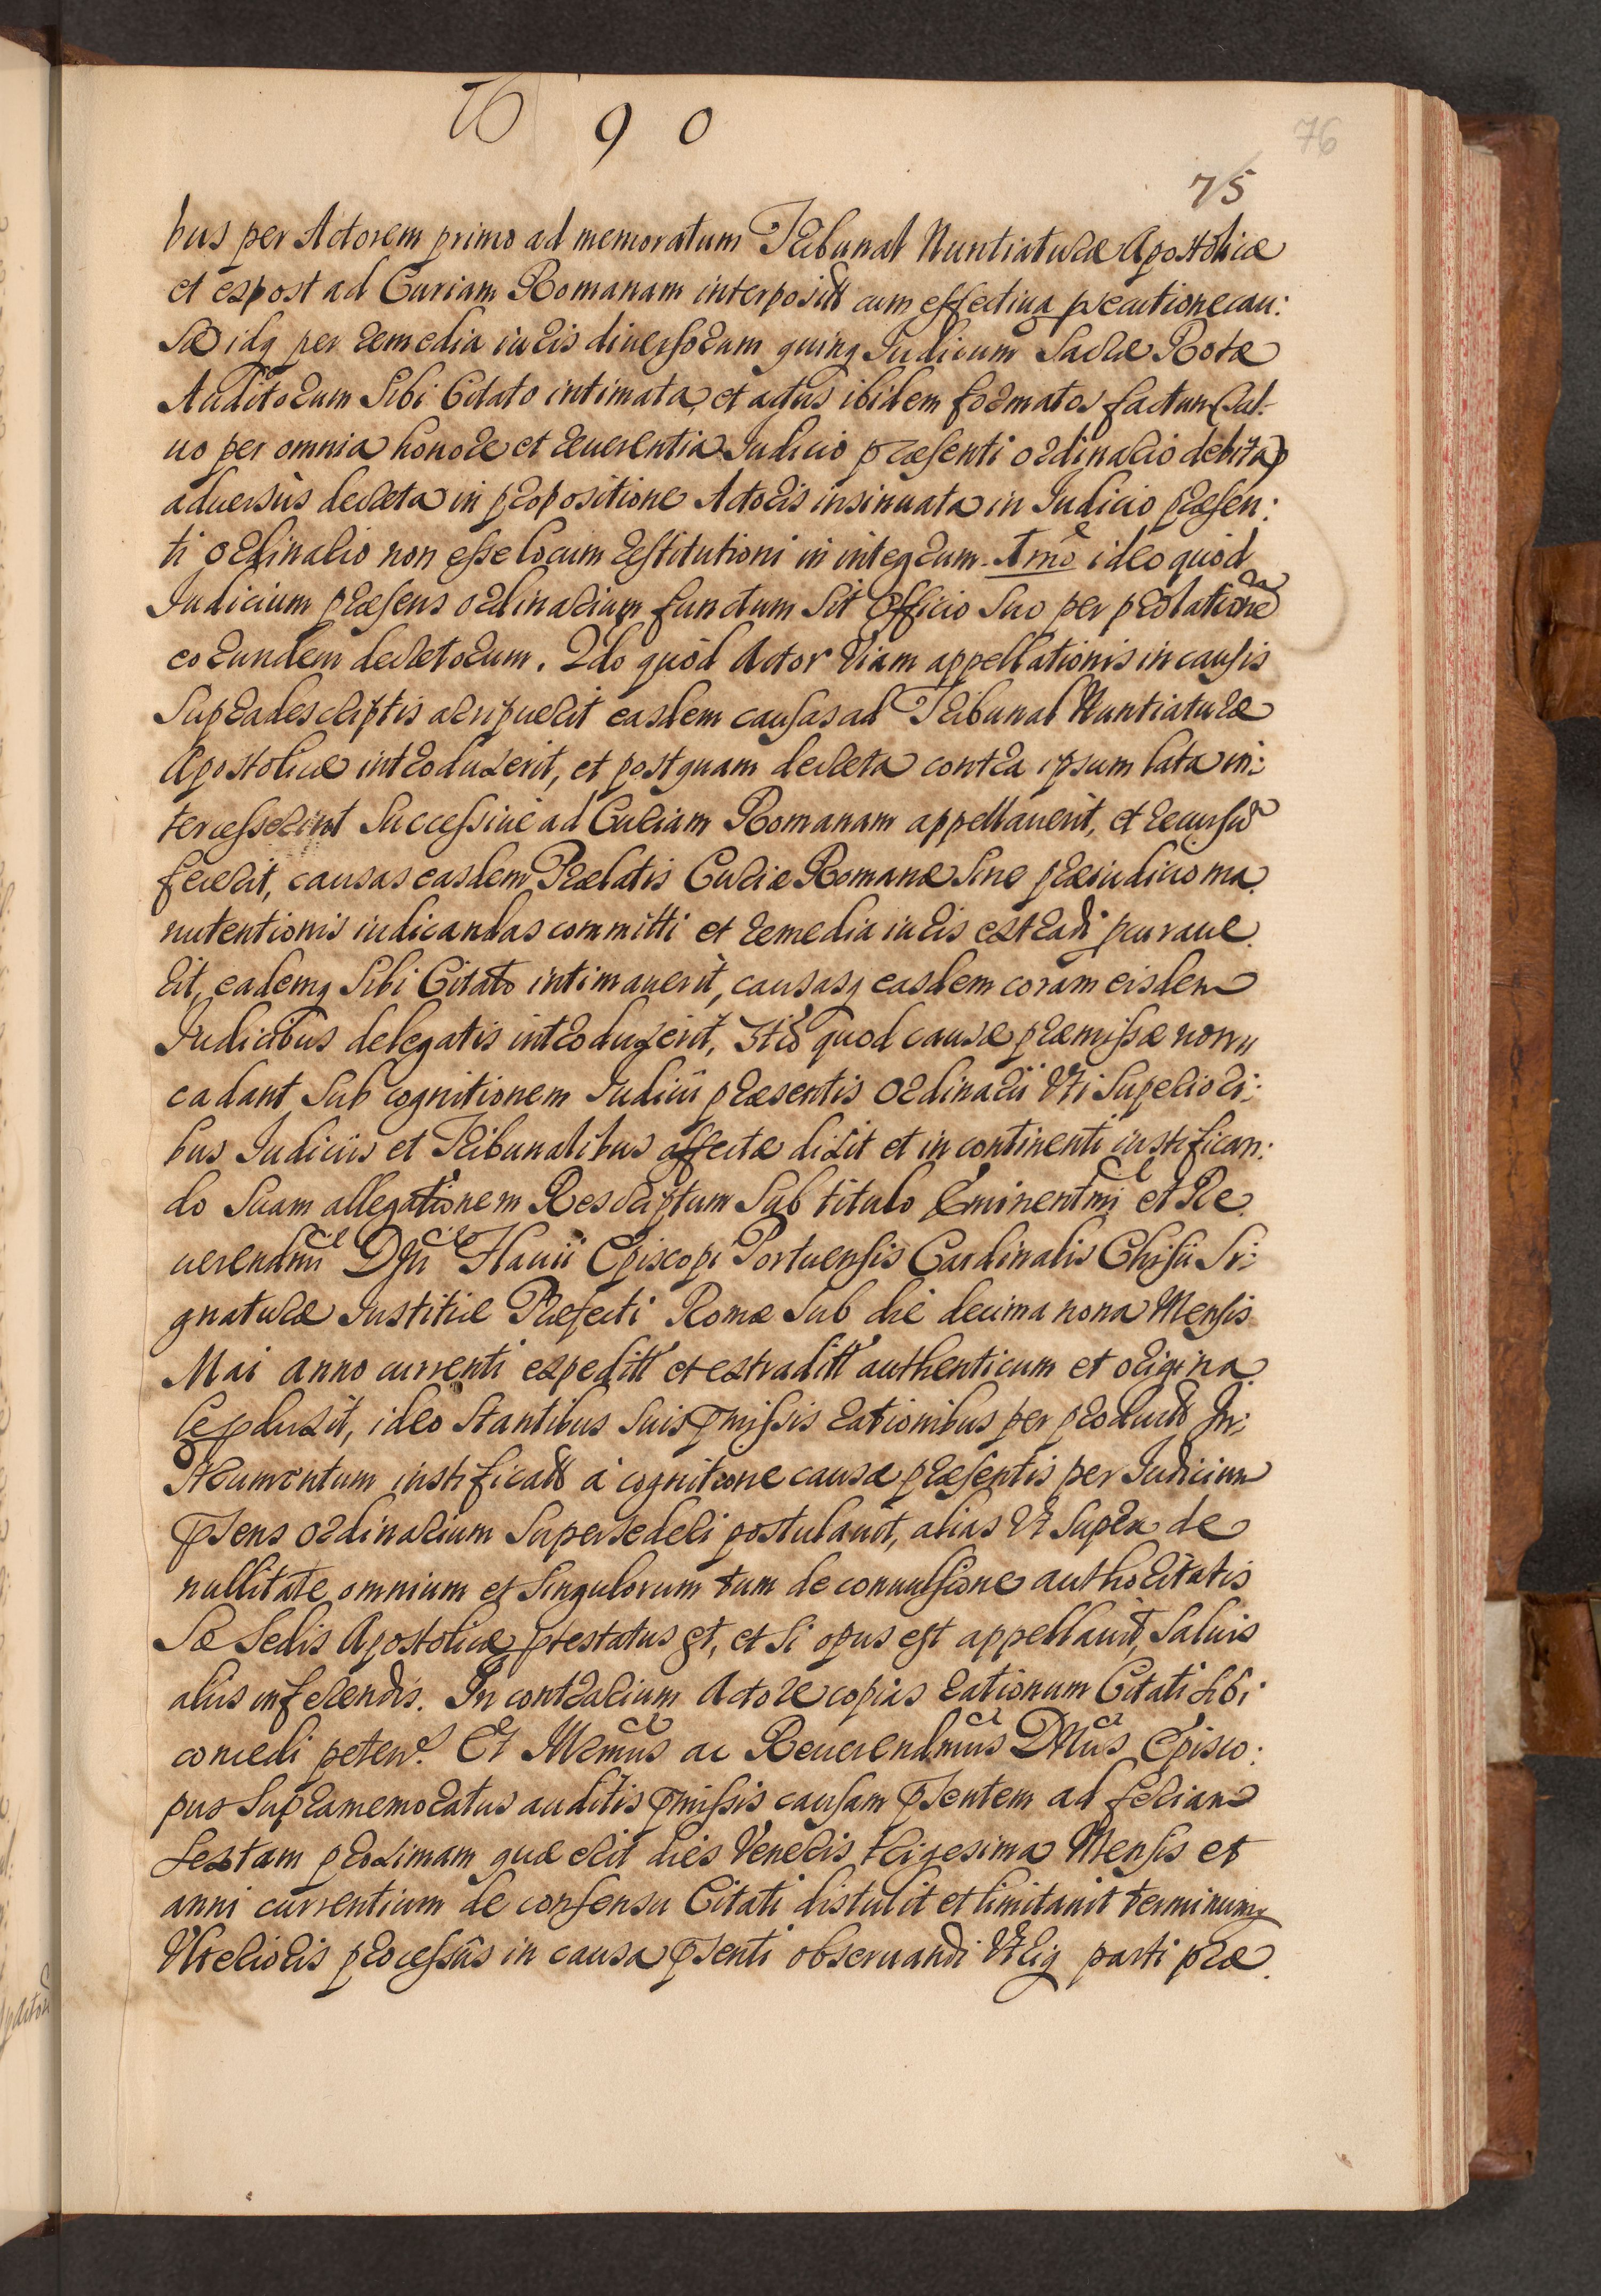 90
76
75
bus per Actorem primo ad memoratum Tribunal Nuntiaturæ Apostolicæ
et expost ad Curiam Romanam interposit cum effectiua psecutione cau:
sæ idq per remedia iuris diuersorum quinq Iudicum Sacræ Rotæ
Auditorum Sibi Citato intimata, et actus ibidem formatos factum (Sal:
uo per omnia honore et reuerentia Iudicio præsenti ordinario debita)
aduersùs decreta in propositione Actoris insinuata in Iudicio præsen:
ti ordinario non esse locum restitutioni in integrum. Imò ideo quòd
Iudicium præsens ordinarium functum sit officio suo per prolatione
eorundem decretorum. 2do quòd Actor Viam appellationis in causis
Supradescriptis arripuerit easdem causas ad Tribunal Nuntiaturæ
Apostolicæ introduxerit, et postquam decreta contra ipsum lata in:
tercesserint Successiuè ad Curiam Romanam appellauerit, et recursu
fecerit, causas easdem Prælatis Curiæ Romanæ Sine præiudicio ma
nutentionis iudicandas committi et remedia iuris extradi curaue
rit, eademq Sibi Citato intimauerit, causasq easdem coram eisdem
Iudicibus delegatis introduxerit, 3tiò quod causæ præmissæ non
cadant Sub cognitionem Iudicii præsentis Ordinarii Vti Superiori:
bus Iudiciis et Tribunalibus affectæ dixit et in continenti iustifican:
do Suam allegationem Rescriptum Sub titulo Eminentmi et Re
uerendmi Dni Flauii Episcopi Portuensis Cardinalis Chisii Si:
gnaturæ Iustitiæ Præfecti Romæ Sub die decima nona Mensis
Mai anno currenti expeditt et extraditt authenticum et origina
le pduxit, ideo Stantibus Suis pmissis rationibus per productt In:
strumentum iustificatt à cognitione causæ præsentis per Iudicium
psens ordinarium Supersederi postulauit, alias Vt Supra de
nullitate omnium et Singulorum tum de conuulsione authoritatis
Sæ Sedis Apostolicæ ptestatus est, et Si opus est appellauit, Saluis
aliis inferendis. In contrarium Actore copias rationum Citati Sibi
concedi peten. Et Illmus ac Reuerendmus Dnus Episco:
pus Supramemoratus auditis pmissis causam psentem ad feriam
Sextam proximam quæ erit dies Veneris trigesima Mensis et
anni currentium de consensu Citati distulit et limitauit terminumq
Vlterioris processûs in causa psenti obseruandi Vtriq parti præ